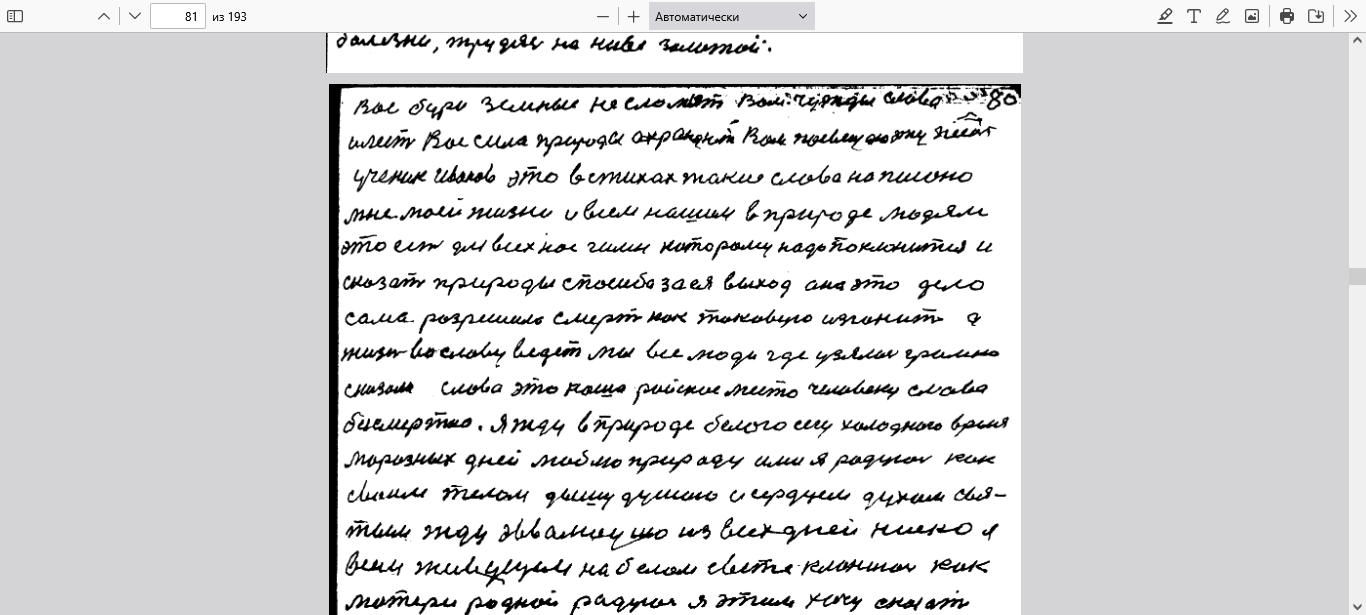 81 из 193 Автоматически
болезни, трудяг на ниве золотой.
Вас бури земные не сломят Вам чужды слова 80
Вас сила природы охраняет Вам
ученик Иванов это в стихах такие слова написоно
мне моей жизни и всем нашим в природе людям
это ест для всех нас гимн которому надо поклонится и
сказат природы спосиба за ея выход она это дело
сама розрешила смерт как таковую изгонит а
жизн во славу ведет мы все люди где узялис громко
сказали слова это наша райское место человеку слава
бесмертно. Я жду в природе белого снегу холодного время
морозных дней люблю природу ими я радуюс как
своим телом дышу душою и сердцем духом свя-
тым жду из всех дней низко я
всем живущем на белом свете кланяюс как
матери родной радуюс я этим хочу сказат